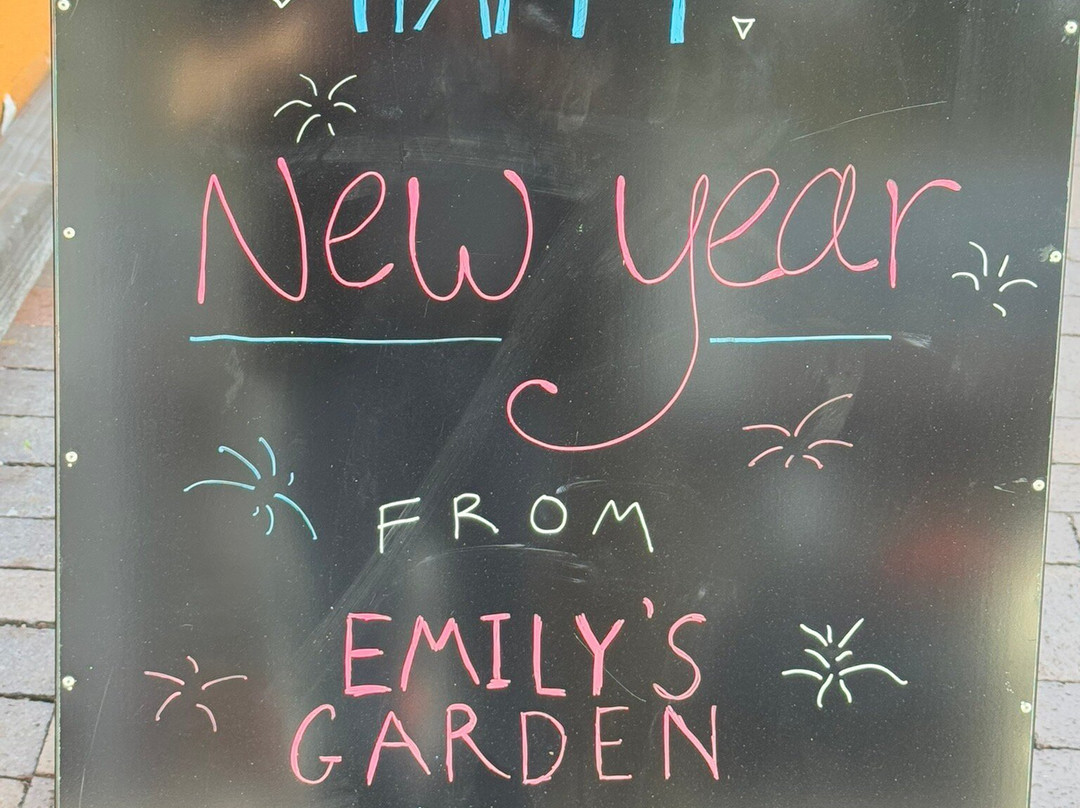 HAPPY
New year
FROM
EMILY'S
GARDEN